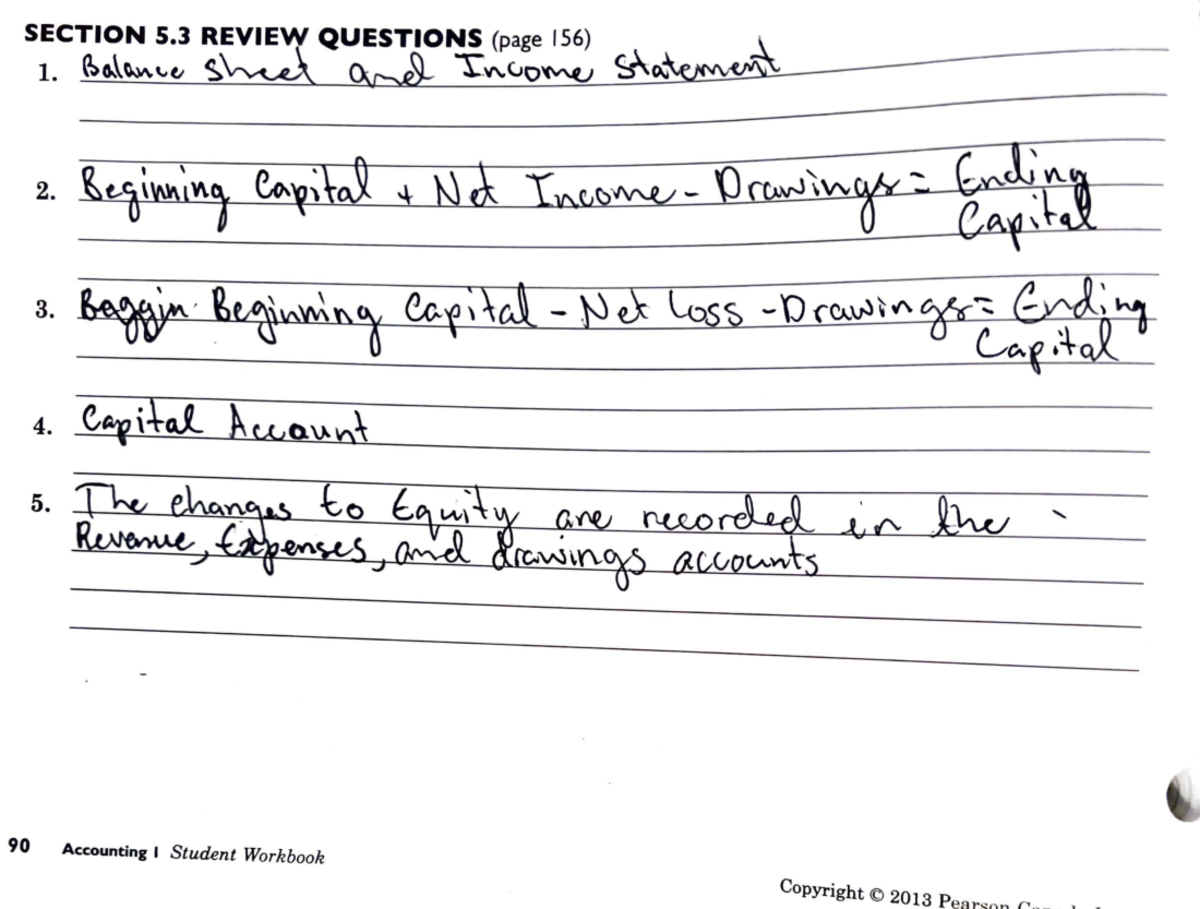 SECTION 5.3 REVIEW QUESTIONS (page 156)
1. Balance sheet and Income Statement
2. Beginning Capital + Net Income - Drawings = Ending
Capital
3. Beginning Capital - Net Loss - Drawings = Ending
Capital
4. Capital Account
5. The changes to Equity are recorded in the
Revenue, Expenses, and drawings accounts
90 Accounting 1 Student Workbook
Copyright © 2013 Pearson